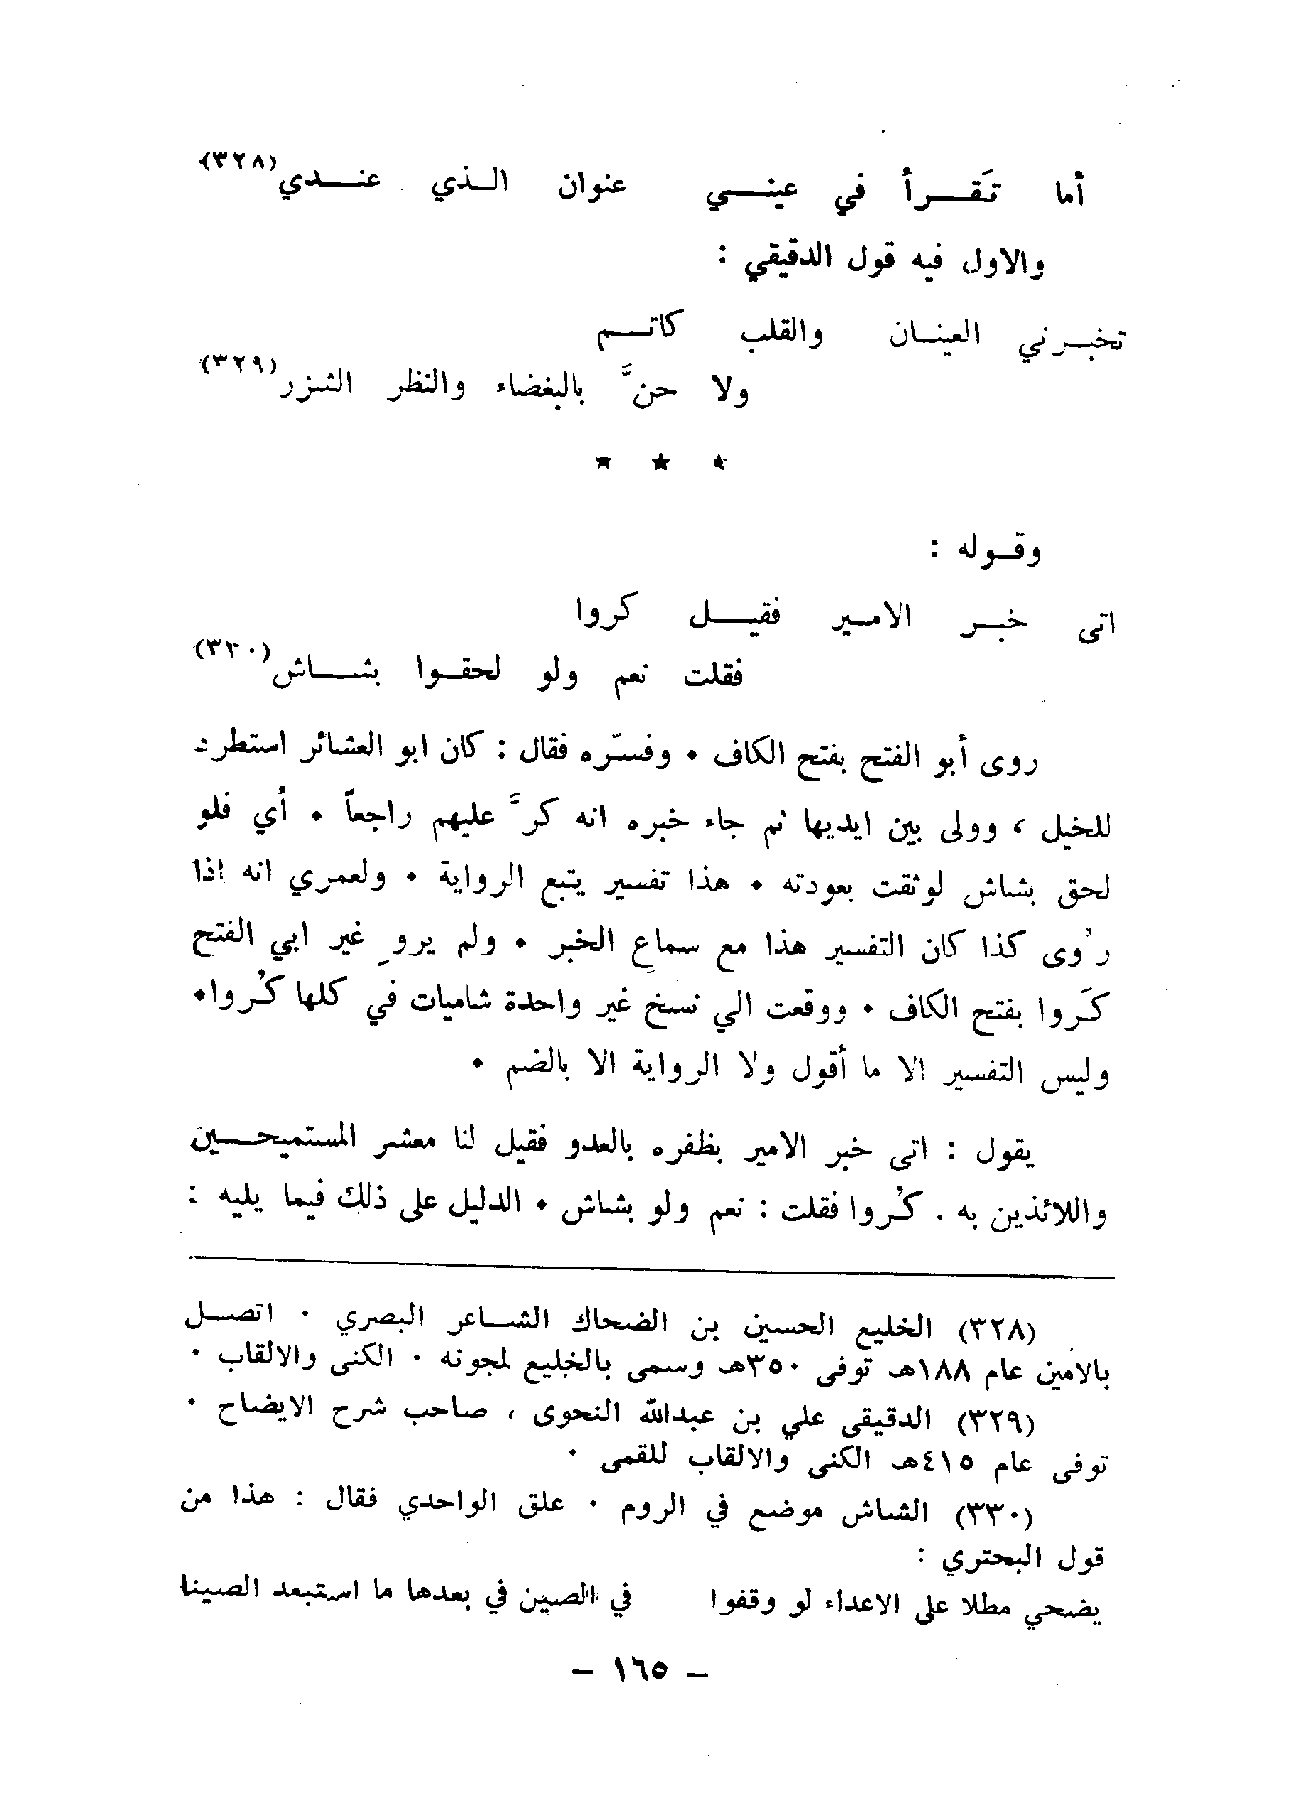 أما تَقرأ في عيني عنوان الذي عندي(٣٢٨)
والاول فيه قول الدقيقي :
تخبرني العينان والقلب كاتم
ولا حنَّ بالبغضاء والنظر الشزر(٣٢٩)
* * *
وقوله :
اتى خبر الامير فقيل كروا
فقلت نعم ولو لحقوا بشاش(٣٣٠)
روى أبو الفتح بفتح الكاف . وفسّره فقال : كان ابو العشائر استطرد
للخيل ، وولى بين ايديها ثم جاء خبره انه كرَّ عليهم راجعاً . أي فلو
لحق بشاش لوثقت بعودته . هذا تفسير يتبع الرواية . ولعمري انه اذا
رُوى كذا كان التفسير هذا مع سماع الخبر . ولم يروِ غير ابي الفتح
كَروا بفتح الكاف . ووقعت الي نسخ غير واحدة شاميات في كلها كُروا.
وليس التفسير الا ما أقول ولا الرواية الا بالضم .
يقول : اتى خبر الامير بظفره بالعدو فقيل لنا معشر المستميحين
واللائذين به . كُروا فقلت : نعم ولو بشاش . الدليل على ذلك فيما يليه :
(٣٢٨) الخليع الحسين بن الضحاك الشاعر البصري . اتصل
بالامين عام ١٨٨هـ توفى ٣٥٠هـ وسمى بالخليع لمجونه . الكنى والالقاب .
(٣٢٩) الدقيقى علي بن عبدالله النحوى ، صاحب شرح الايضاح .
توفى عام ٤١٥هـ الكنى والالقاب للقمى .
(٣٣٠) الشاش موضع في الروم . علق الواحدي فقال : هذا من
قول البحتري :
يضحي مطلا على الاعداء لو وقفوا في الصين في بعدها ما استبعد الصينا
– ١٦٥ –